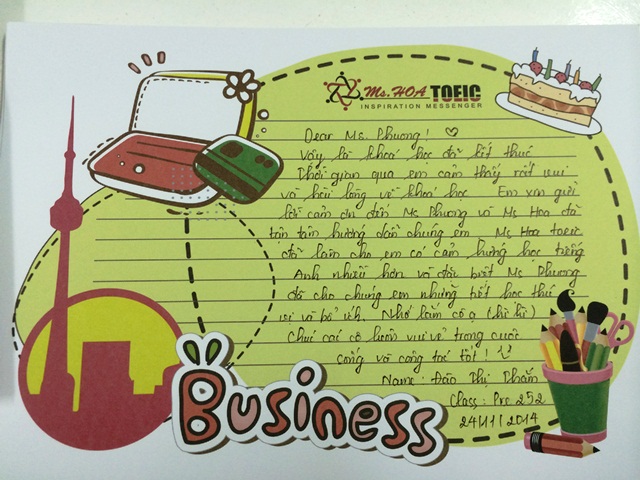 Ms.HOA TOEIC
INSPIRATION MESSENGER
Dear Ms. Phương! ♡
Vậy là khoá học đã kết thúc
Thời gian qua em cảm thấy rất vui
và hài lòng về khoá học Em xin gửi
lời cảm ơn đến Ms Phương và Ms Hoa đã
tận tâm hướng dẫn chúng em Ms Hoa toeic
đã làm cho em có cảm hứng học tiếng
Anh nhiều hơn và đặc biệt Ms Phương
đã cho chúng em những tiết học thú
vị và bổ ích. Nhớ lắm cô ạ (hì hì)
Chúc các cô luôn vui vẻ trong cuộc
sống và công tác tốt!
Name: Đào Thị Thắm
Class: Pre 252
24/11/2014
Business